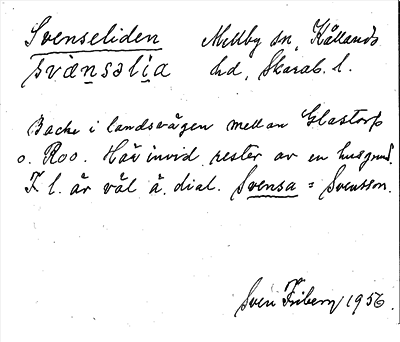 Svenseliden Mellby sn, Kållands
svænsəli̯a hd, Skarab. l.
Backe i landsvägen mellan Glastorp
o. Roo. Här invid rester av en husgrund.
F. l. är väl å. dial. Svensa = Svensson.
Sven Friberg 1956.